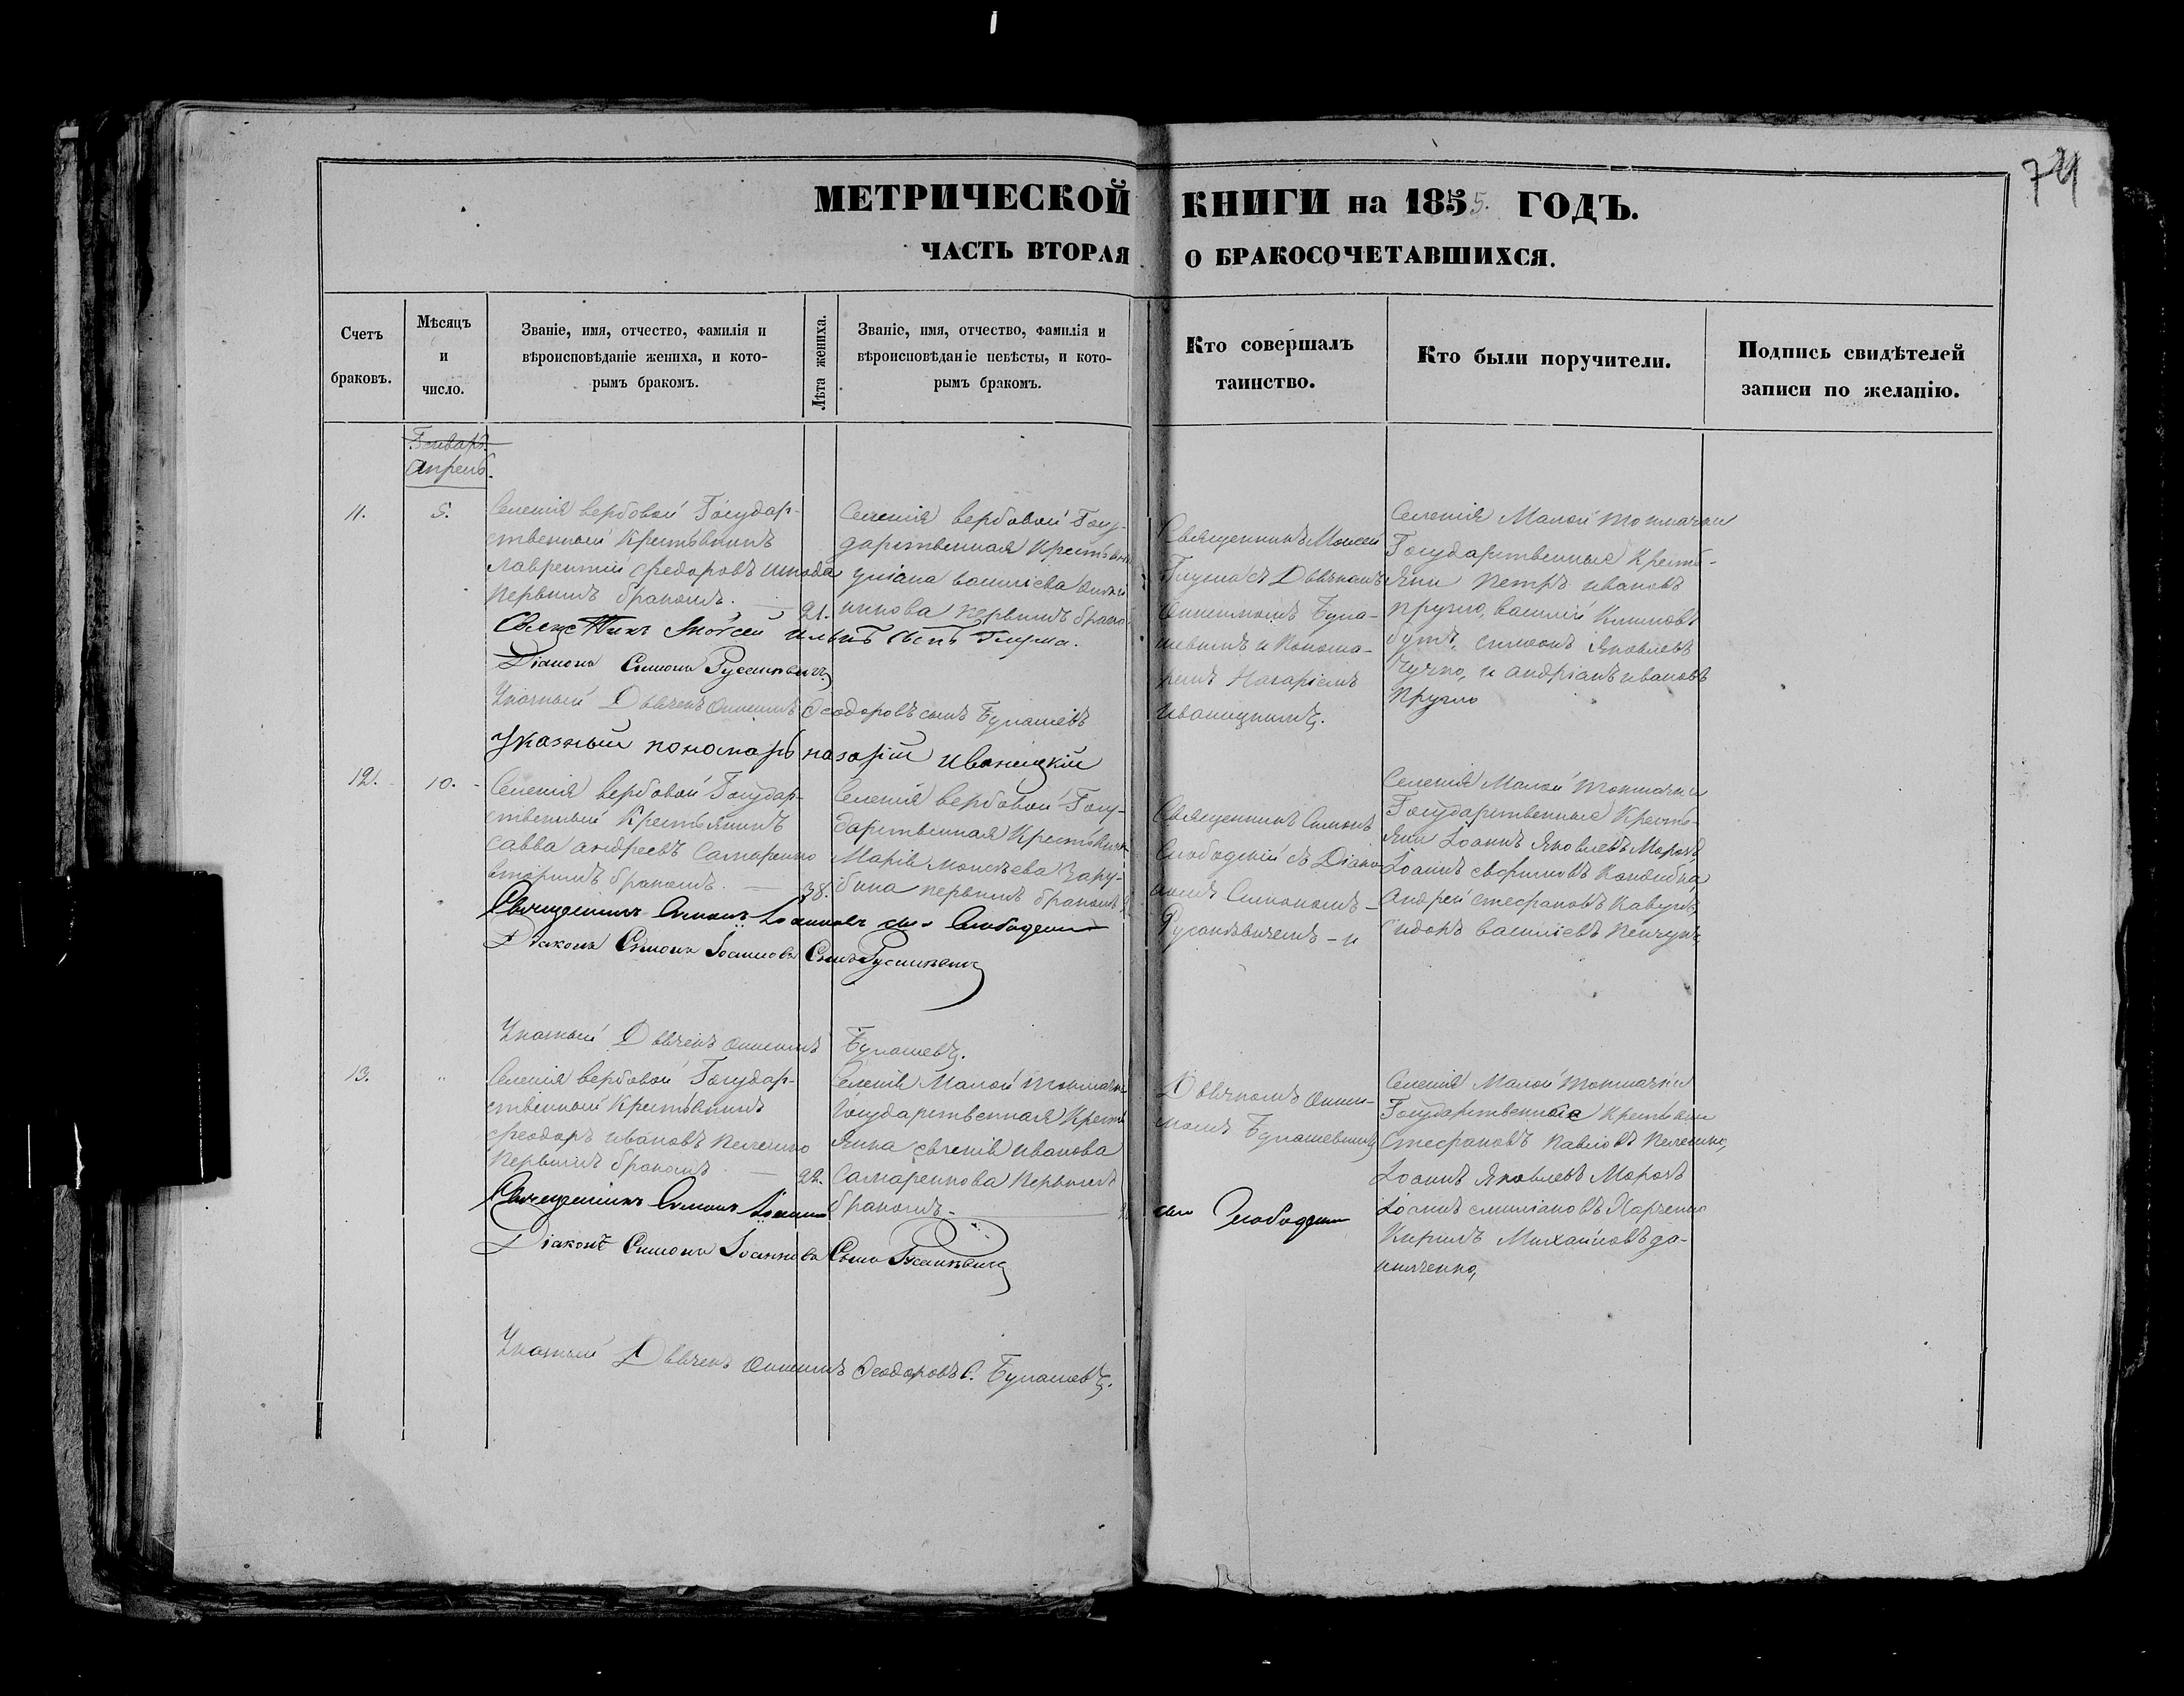 74
МЕТРИЧЕСКОЙ КНИГИ на 1855. ГОДЪ.
ЧАСТЬ ВТОРАЯ О БРАКОСОЧЕТАВШИХСЯ.
Счетъ
браковъ.
Мѣсяцъ
и
число.
Званіе, имя, отчество, фамилія и
вѣроисповѣданіе жениха, и кото-
рымъ бракомъ.
Лѣта жениха.
Званіе, имя, отчество, фамилія и
вѣроисповѣданіе невѣсты, и кото-
рымъ бракомъ.
Кто совершалъ
таинство.
Кто были поручители.
Подпись свидѣтелей
записи по желанію.
Апрель.
11.
5.
Селенія Вербовой Государ-
ственный Крестьянинъ
Лаврентій Федоровъ Шкода
первымъ бракомъ.
21.
Селенія Вербовой Госу-
дарственная
Уліана Василіева
первымъ
Священникъ Моисей
Глузма съ Дьячкомъ
Онисимомъ Була-
шевымъ и Понома-
ремъ Назаріемъ
Иваницкимъ.
Селенія Малой Токмачки
Государственные Кресть-
яне Петръ Ивановъ
Пругло, Василій Климовъ
Симеонъ Яковлевъ
и Андріанъ Ивановъ
Пругло
Моѵсей Ильинъ сынъ Глузма.
Діаконъ Симонъ Русанкевичъ
Указный Дьячекъ Онисимъ Феодоровъ сынъ Булашевъ
Указный пономарь назарій Иваницкій
12.
10.
Селенія Вербовой Государ-
ственный Крестьянинъ
Савва Андреевъ Самаренко
вторымъ бракомъ.
38.
Селенія Вербовой Госу-
дарственная
Марія Моисѣева Зару-
бина первымъ бракомъ
Священникъ Симонъ
Слободскій съ Діако-
номъ Симономъ
Русанкѣвичемъ - и
Селенія Малой Токмачки
Государственные Кресть-
яне Іоаннъ Яковлевъ Морозъ
Іоаннъ
Андрей Стефановъ Кавунъ,
Сидоръ Василіевъ
Священникъ Симонъ Іоанновъ сын Слободскій
Діаконъ Симонъ Іоанновъ Сынъ Русанкевичъ
Указный Дьячекъ Онисимъ Булашевъ.
13.
"
Селенія Вербовой Государ-
ственный Крестьянинъ
Феодоръ Ивановъ
первымъ бракомъ
22.
Селенія Малой Токмачки
Государственная Кресть-
янка Евгенія Иванова
Самаренкова первымъ
бракомъ.
Дьячкомъ Ониси-
момъ Булашевымъ
Селенія Малой Токмачки
Государственные Крестьяне
Стефановъ Павловъ
Іоаннъ Яковлевъ Морозъ
Іоаннъ Емиліановъ Харченко
Кирилъ Михайловъ Да-
нилченко,
Священникъ Симонъ Іоанновъ сын Слободскій
Діаконъ Симонъ Іоанновъ Сынъ Русанкевичъ
Указный Дьячекъ Онисимъ Феодоровъ С. Булашевъ.